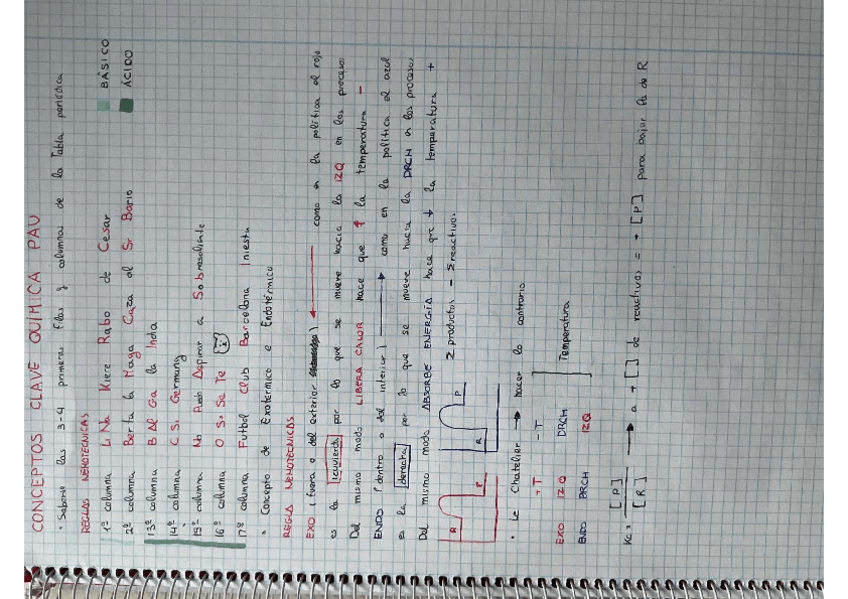 CONCEPTOS CLAVE QUÍMICA PAU
• Saberse las 3-4 primeras filas y columnas de la Tabla periódica
REGLAS NEMOTECNICAS
BÁSICO
ÁCIDO
1ª columna Li Na Kiere Rabo de Cesar
2ª columna Berta la Maga Caza al Sr Bario
13ª columna B Al Ga la India
14ª columna C Si Germany
15ª columna No Pudo Aspirar a Sobresaliente
16ª columna O S Se Te
17ª columna Futbol Club Barcelona Iniesta
• Concepto de Exotérmico e Endotérmico
REGLA NEMOTECNICAS
EXO (fuera o del exterior) ← como en la política el rojo
es la izquierda por lo que se mueve hacia la IZQ en los procesos
Del mismo modo LIBERA CALOR hace que ↑ la temperatura -
ENDO (dentro o del interior) → como en la política el azul
es la derecha por lo que se mueve hacia la DRCH en los procesos
Del mismo modo ABSORBE ENERGÍA hace que ↓ la temperatura +
R P
R P
Σ productos - Σ reactivos
• Le Chatelier → hacer lo contrario
+T -T
EXO IZQ DRCH
ENDO DRCH IZQ
Temperatura
Kc = [P] / [R] → a + [ ] de reactivos = + [P] para bajar la de R